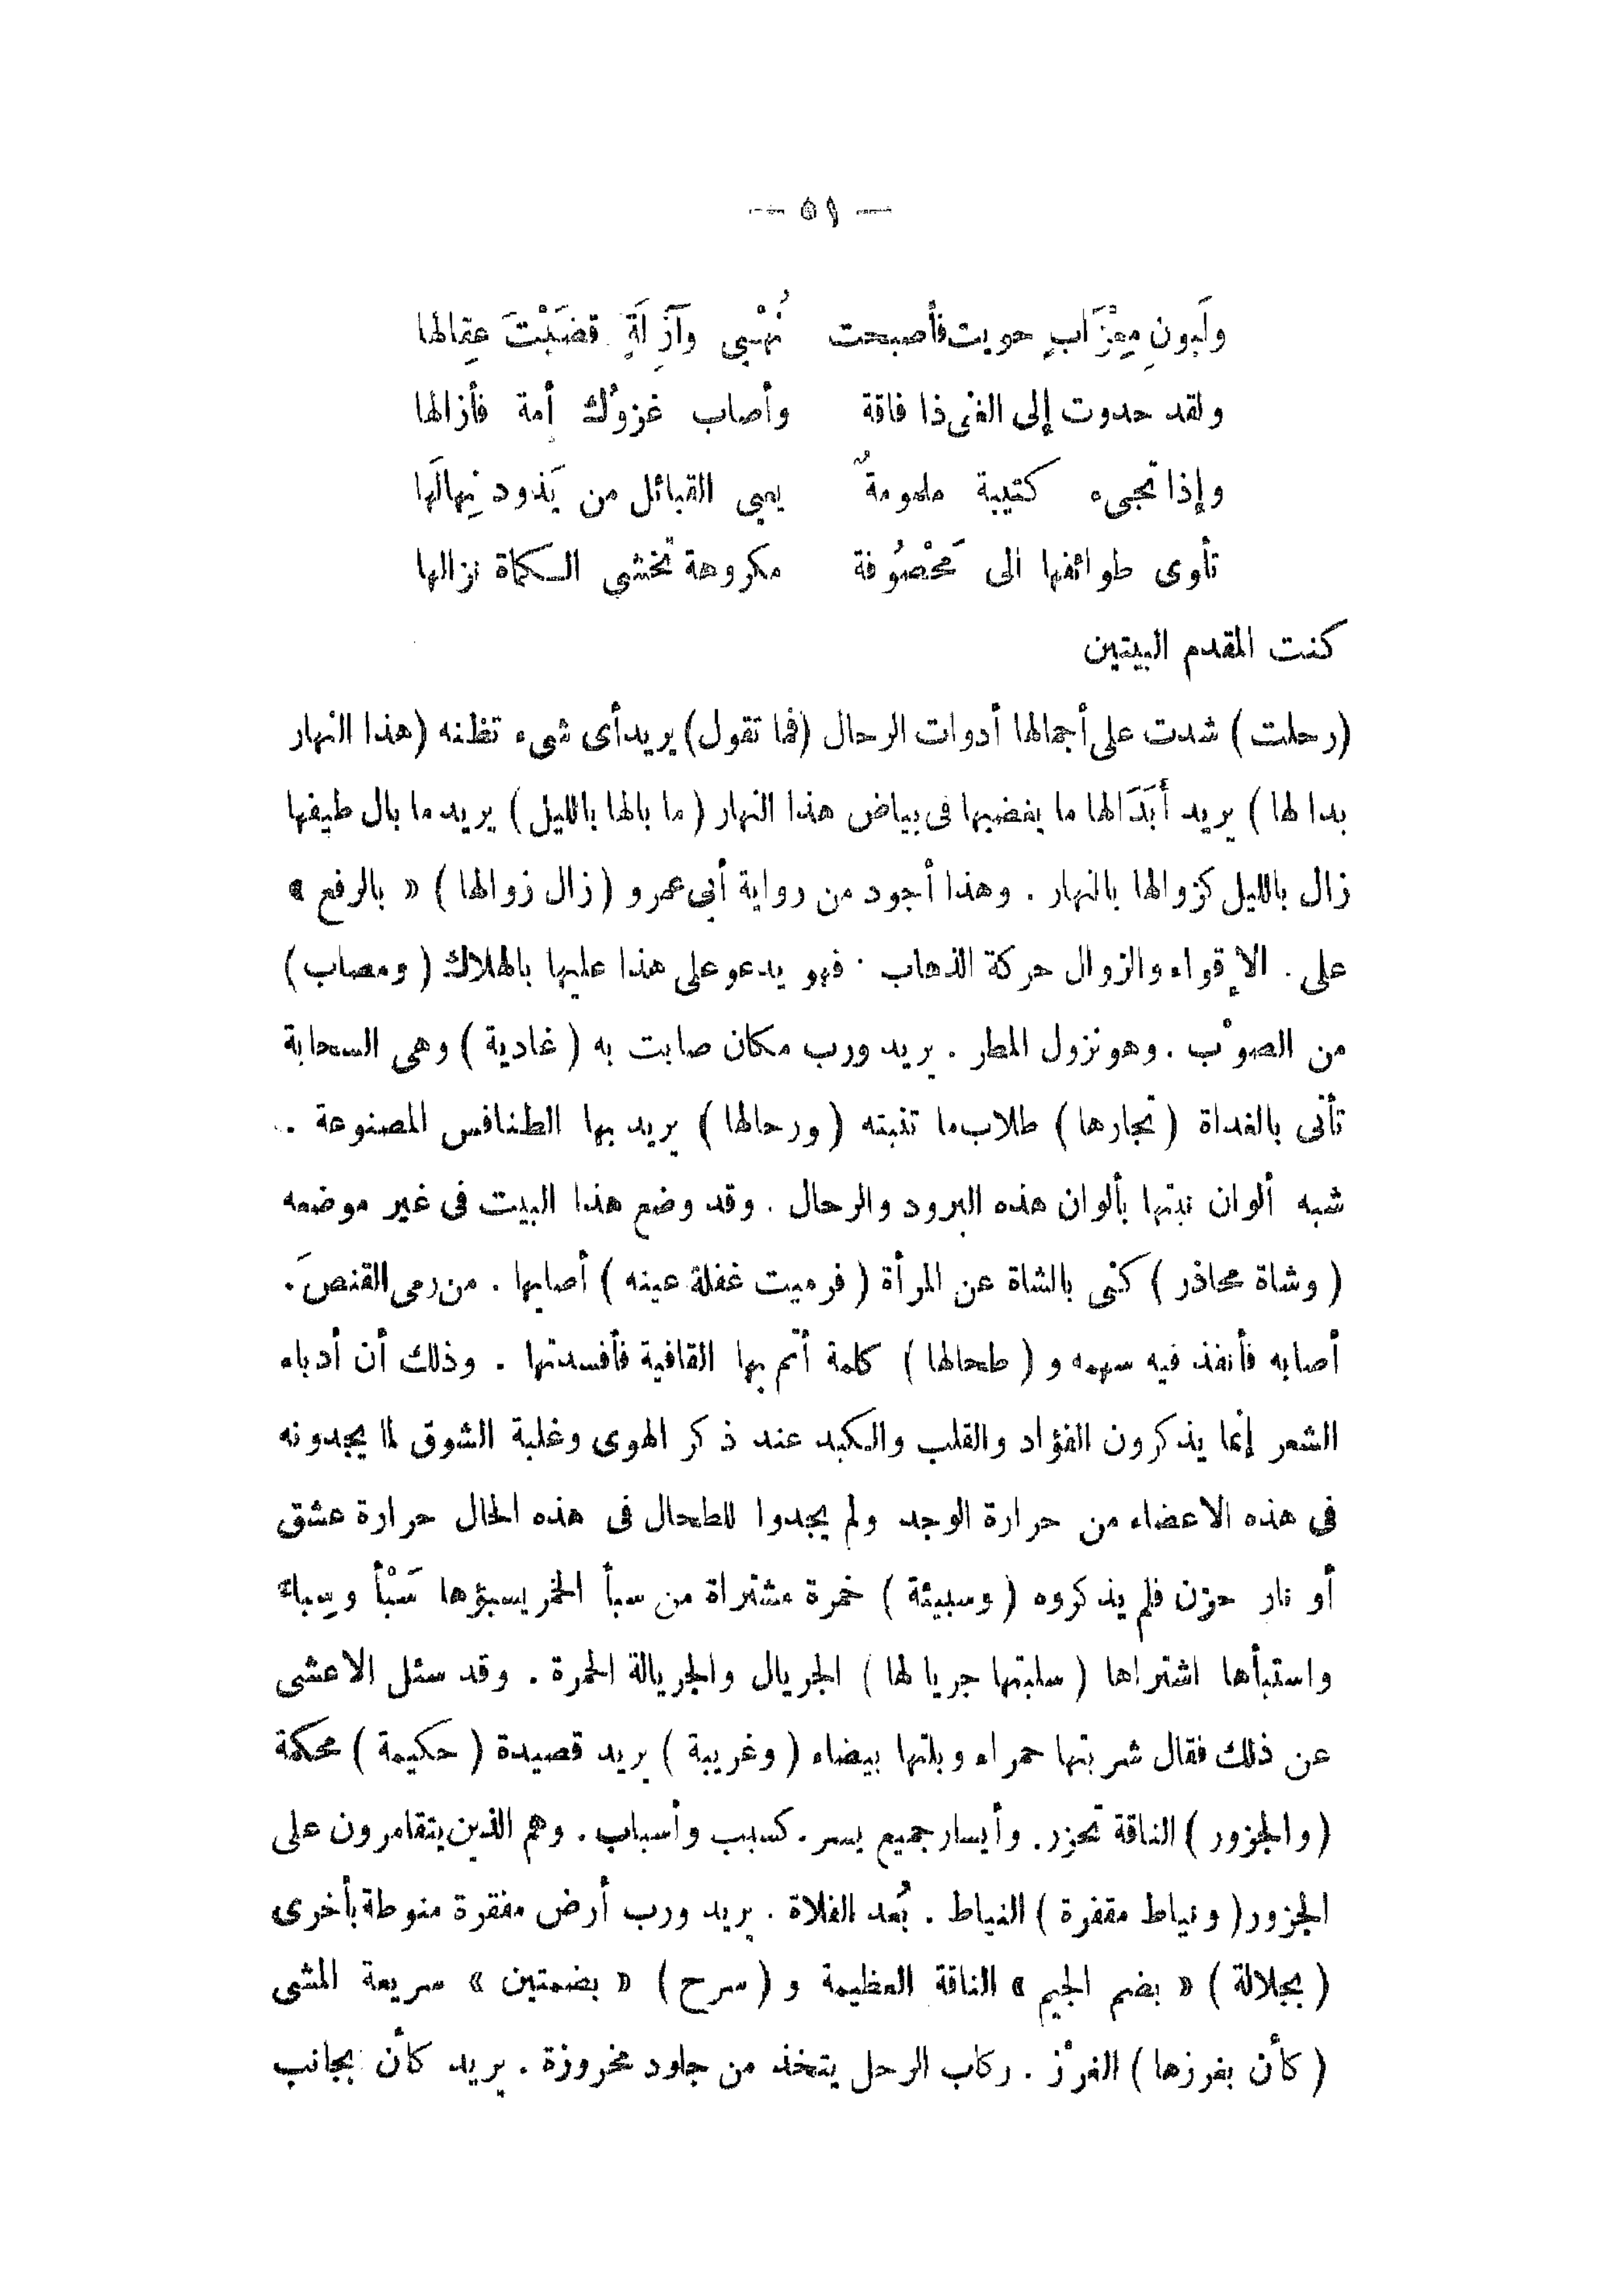 — ٥١ —
ولَبونِ مِعْزَابٍ حويت فأصبحت نُهْبِي وَآزِلَةٍ قضَبْتَ عِقالها
ولقد حدوت إلى الغنى ذا فاقة وأصاب غزوُك إمة فأزالها
وإذا تجىء كتيبة ملمومةٌ يعيى القبائل من يَذود نِهالَها
تأوى طوائفها الى مَحْصُوفة مكروهة تخشى الكماة نزالها
كنت المقدم البيتين
(رحلت) شدت على أجمالها أدوات الرحال (فما تقول) يريد أى شىء تظنه (هذا النهار
بدا لها) يريد أَبَدَا لها ما يغضبها فى بياض هذا النهار (ما بالها بالليل) يريد ما بال طيفها
زال بالليل كزوالها بالنهار . وهذا أجود من رواية أبى عمرو (زال زوالها) « بالرفع »
على . الإقواء والزوال حركة الذهاب . فهو يدعو على هذا عليها بالهلاك (ومصاب)
من الصوْب . وهو نزول المطر . يريد ورب مكان صابت به (غادية) وهى السحابة
تأتى بالغداة (تجارها) طلاب ما تنبته (ورحالها) يريد بها الطنافس المصنوعة .
شبه ألوان نبتها بألوان هذه البرود والرحال . وقد وضع هذا البيت فى غير موضعه
(وشاة محاذر) كنى بالشاة عن المرأة (فرميت غفلة عينه) أصابها . من رمى القنصَ .
أصابه فأنفذ فيه سهمه و (طحالها) كلمة أتم بها القافية فأفسدتها . وذلك أن أدباء
الشعر إنما يذكرون الفؤاد والقلب والكبد عند ذكر الهوى وغلبة الشوق لما يجدونه
فى هذه الاعضاء من حرارة الوجد ولم يجدوا للطحال فى هذه الحال حرارة عشق
أو نار حزن فلم يذكروه (وسبيئة) خمرة مشتراة من سبأ الخمر يسبؤها سَبْأً وسِباء
واستبأها اشتراها (سلبتها جريالها) الجريال والجريالة الحمرة . وقد سئل الاعشى
عن ذلك فقال شربتها حمراء وبلتها بيضاء (وغريبة) يريد قصيدة (حكيمة) محكمة
(والجزور) الناقة تجزر . وأيسار جميع يسر . كسبب وأسباب . وهم الذين يتقامرون على
الجزور (ونياط مقفرة) النياط . بُعد الفلاة . يريد ورب أرض مفقرة منوطة بأخرى
(بجلالة) « بضم الجيم » الناقة العظيمة و (سرح) « بضمتين » سريعة المشى
(كأن بغرزها) الغرْز . ركاب الرحل يتخذ من جلود مخروزة . يريد كأن بجانب